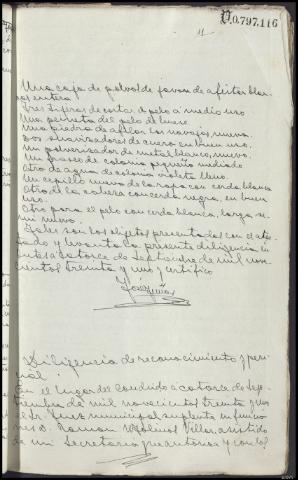 O.797.116
11
Una caja de polvo de javon de afeitar blan-
co, entera
Tres tijeras de cortar el pelo a medio uso
Una peineta del pelo de hueso
Una piedra de afilar las navajas, nueva.
Dos suavizadores de cuero en buen uso.
Un pulverizador de metal blanco, nuevo.
Un frasco de colonia pequeño mediado
Otro de agua de colonia violeta lleno
Un cepillo nuevo de la ropa con cerda blanca
Otro de la cabeza con cerda negra, en buen
uso.
Otro para el pelo con cerda blanca, larga, se-
mi nuevo.
Tales son los objetos presentados con el ates-
tado y levanto la presente diligencia en
a catorce de Septiembre de mil nove-
cientos treinta y uno y certifico
José
Diligencia de reconocimiento y peri-
cial
En el lugar del Condado a catorce de Sep-
tiembre de mil novecientos treinta y uno
el Sr. Juez municipal suplente en funcio-
nes D. Ramon Molinos Villar, asistido
de mi Secretario que autoriza y con el